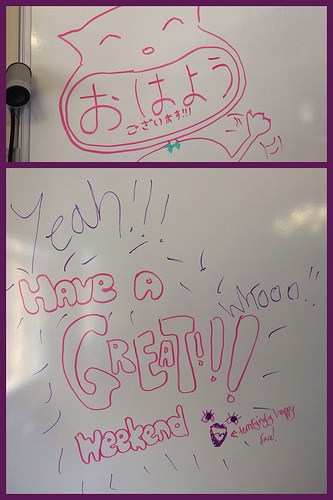 おはよう
ございます!!!
Yeah!!!
HAVE A
Whooo!!
GREAT!!!
Weekend
← terrifyingly happy
face!